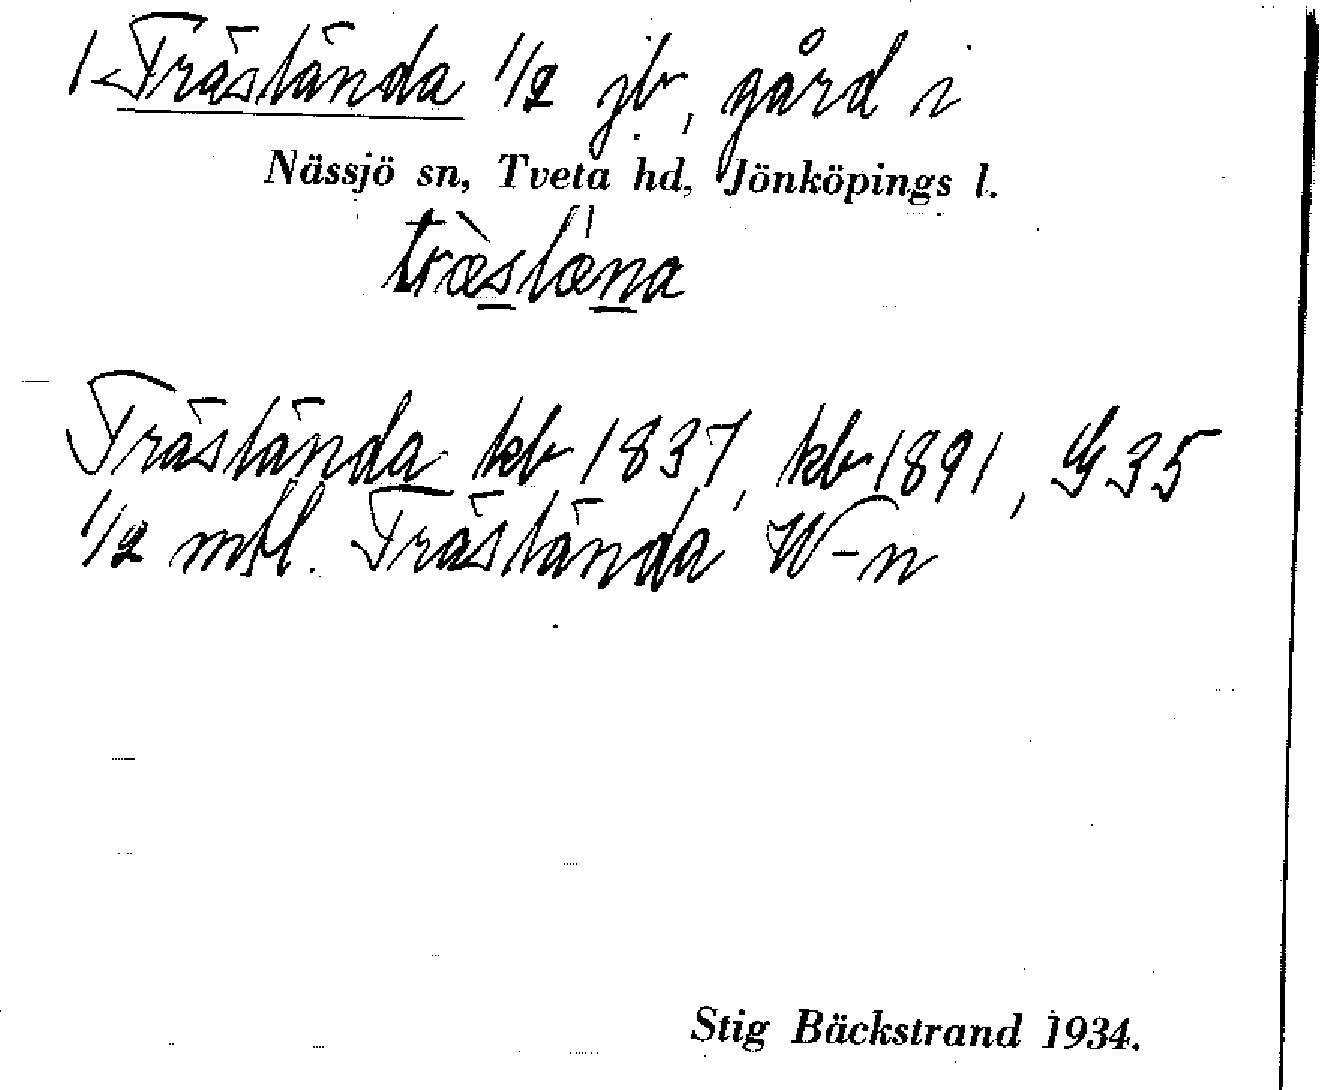 1 Träslända 1/2 jb, gård i
Nässjö sn, Tveta hd, Jönköpings l.
træ̀slæ̀na
Träslända kb 1837, kb 1891, G 35
1/2 mtl. Träslända W-n
Stig Bäckstrand 1934.